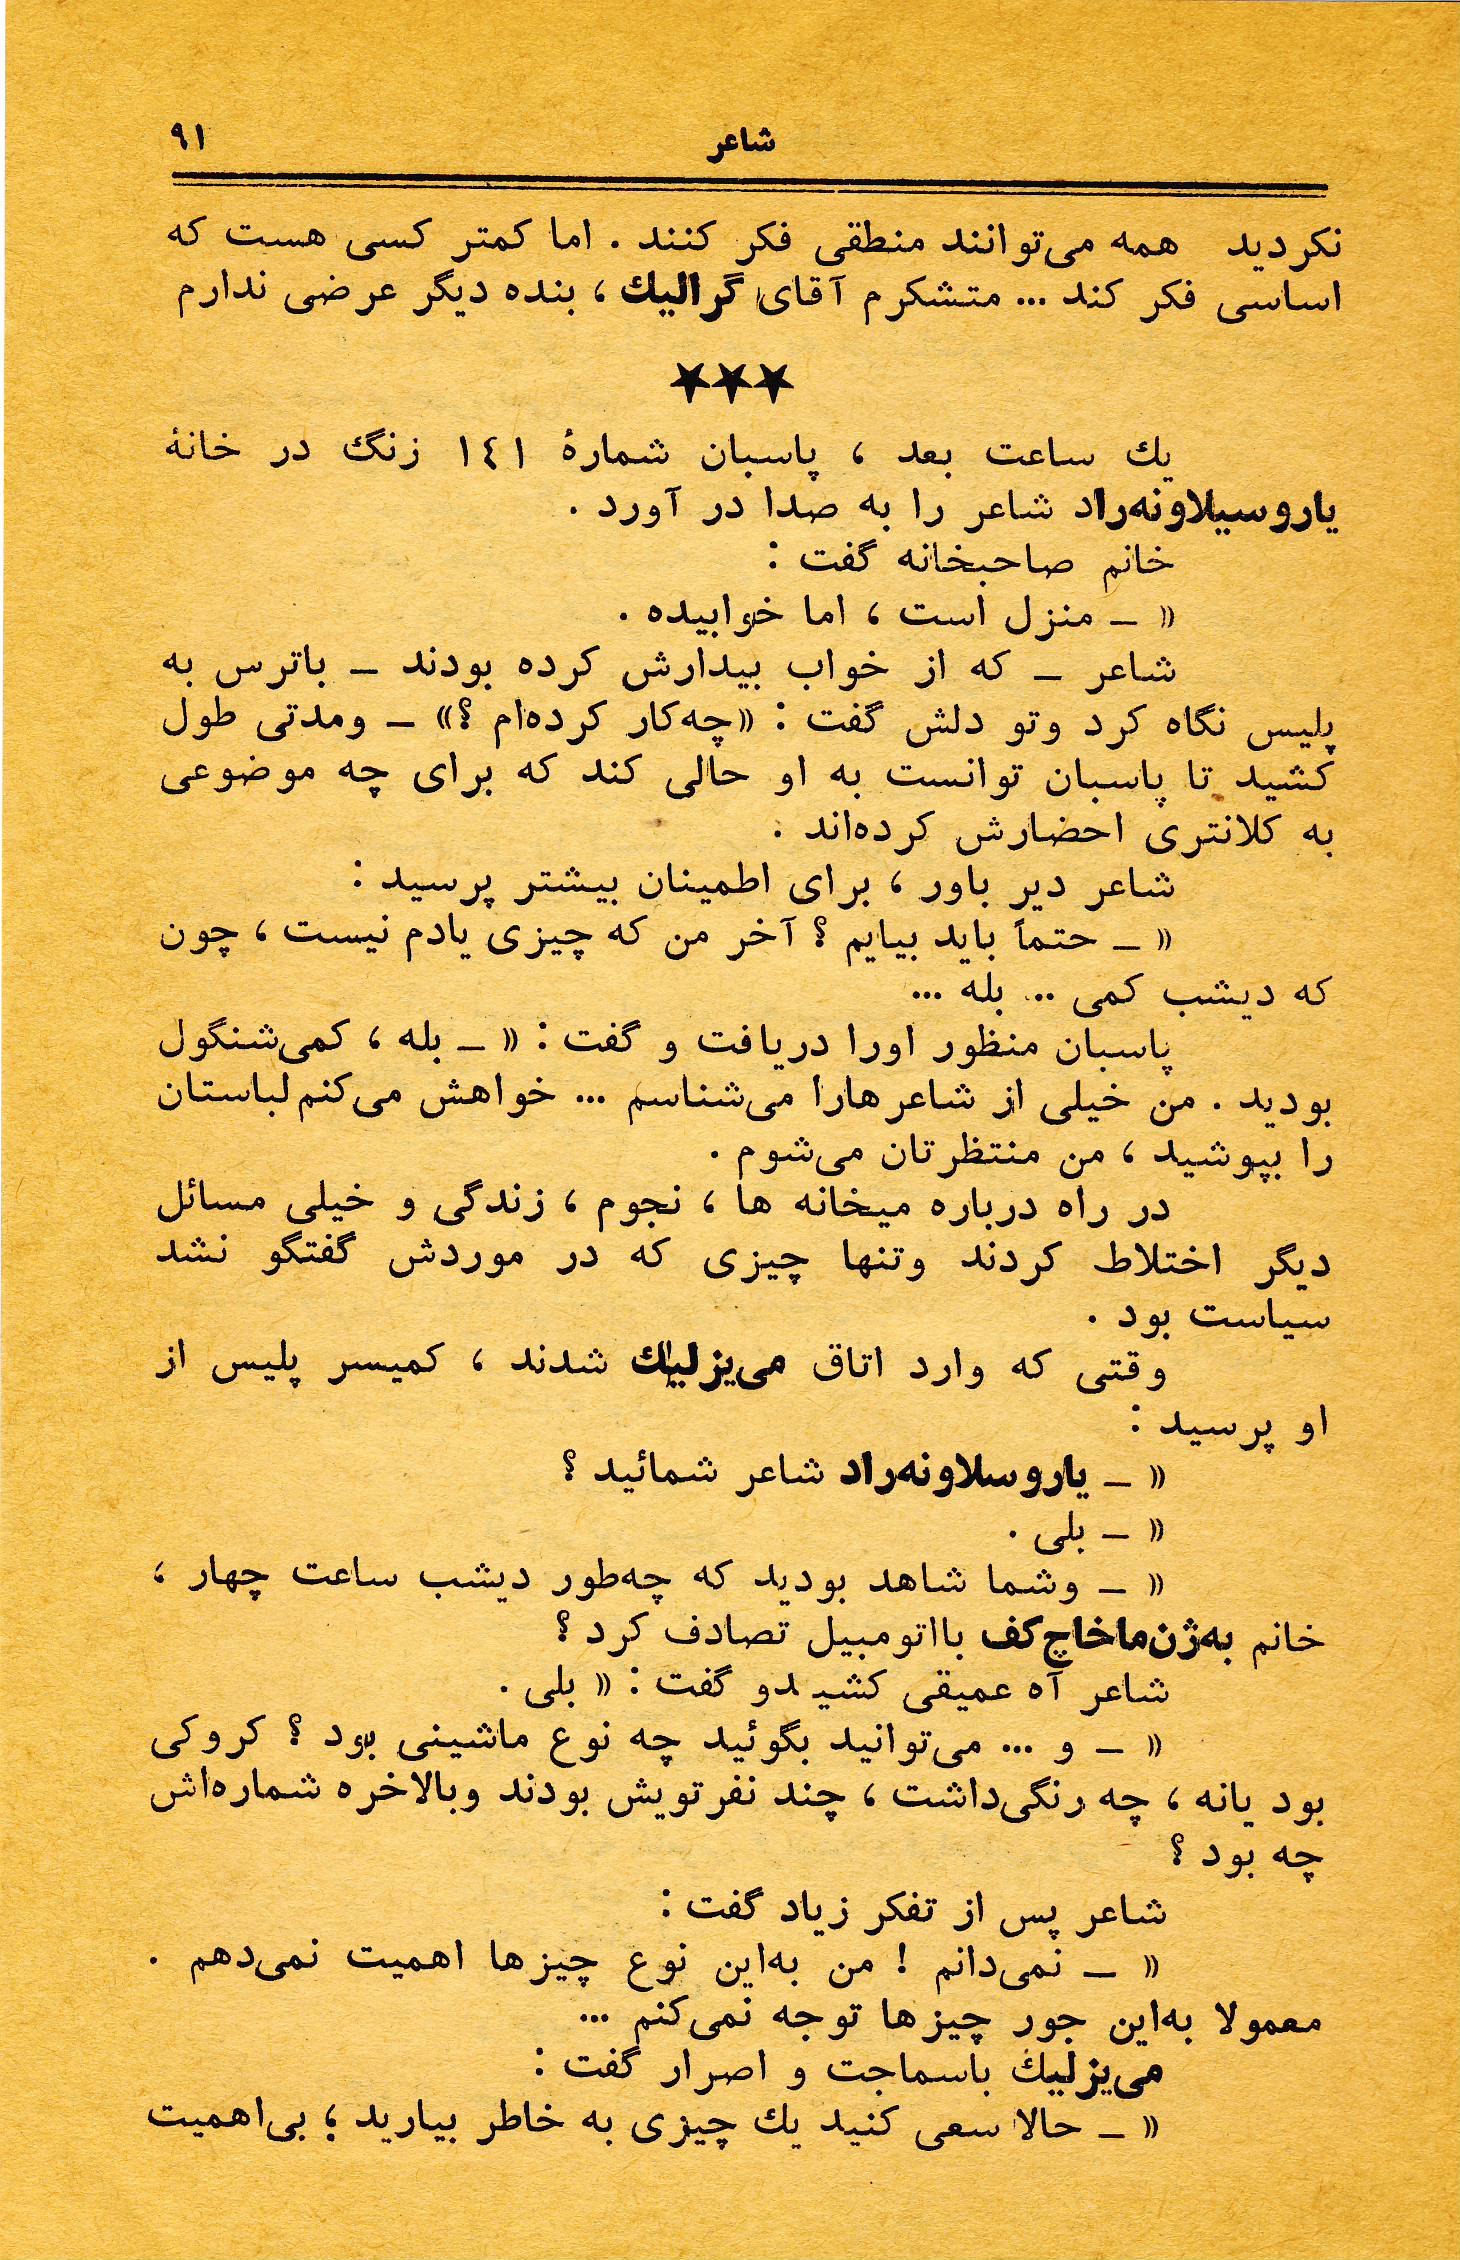 شاعر ۹۱
نکردید همه می‌توانند منطقی فکر کنند . اما کمتر کسی هست که
اساسی فکر کند ... متشکرم آقای گرالیك ، بنده دیگر عرضی ندارم
★★★
یك ساعت بعد ، پاسبان شمارهٔ ۱٤۱ زنگ در خانهٔ
یاروسیلاونه‌راد شاعر را به صدا در آورد .
خانم صاحبخانه گفت :
« ــ منزل است ، اما خوابیده .
شاعر ــ که از خواب بیدارش کرده بودند ــ باترس به
پلیس نگاه کرد وتو دلش گفت : «چه‌کار کرده‌ام ؟» ــ ومدتی طول
کشید تا پاسبان توانست به او حالی کند که برای چه موضوعی
به کلانتری احضارش کرده‌اند .
شاعر دیر باور ، برای اطمینان بیشتر پرسید :
« ــ حتماً باید بیایم ؟ آخر من که چیزی یادم نیست ، چون
که دیشب کمی ... بله ...
پاسبان منظور اورا دریافت و گفت : « ــ بله ، کمی‌شنگول
بودید . من خیلی از شاعرهارا می‌شناسم ... خواهش می‌کنم لباستان
را بپوشید ، من منتظرتان می‌شوم .
در راه درباره میخانه ها ، نجوم ، زندگی و خیلی مسائل
دیگر اختلاط کردند وتنها چیزی که در موردش گفتگو نشد
سیاست بود .
وقتی که وارد اتاق می‌یزلیك شدند ، کمیسر پلیس از
او پرسید :
« ــ یاروسلاونه‌راد شاعر شمائید ؟
« ــ بلی .
« ــ وشما شاهد بودید که چه‌طور دیشب ساعت چهار ،
خانم به‌ژن‌ماخاچ‌کف بااتومبیل تصادف کرد ؟
شاعر آه عمیقی کشیدو گفت : « بلی .
« ــ و ... می‌توانید بگوئید چه نوع ماشینی بود ؟ کروکی
بود یانه ، چه رنگی‌داشت ، چند نفرتویش بودند وبالاخره شماره‌اش
چه بود ؟
شاعر پس از تفکر زیاد گفت :
« ــ نمی‌دانم ! من به‌این نوع چیزها اهمیت نمی‌دهم .
معمولا به‌این جور چیزها توجه نمی‌کنم ...
می‌یزلیك باسماجت و اصرار گفت :
« ــ حالا سعی کنید یك چیزی به خاطر بیارید ؛ بی‌اهمیت